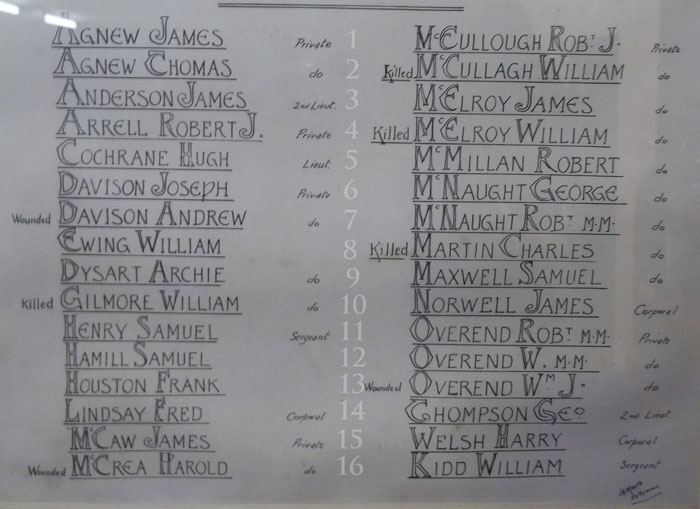 Agnew James Private 1 McCullough Robt J. Private
Agnew Thomas do 2 Killed McCullagh William do
Anderson James 2nd Lieut. 3 McElroy James do
Arrell Robert J. Private 4 Killed McElroy William do
Cochrane Hugh Lieut. 5 McMillan Robert do
Davison Joseph Private 6 McNaught George do
Wounded Davison Andrew do 7 McNaught Robt M.M. do
Ewing William 8 Killed Martin Charles do
Dysart Archie do 9 Maxwell Samuel do
Killed Gilmore William do 10 Norwell James Corporal
Henry Samuel Sergeant 11 Overend Robt M.M. Private
Hamill Samuel 12 Overend W. M.M. do
Houston Frank 13 Wounded Overend Wm J. do
Lindsay Fred Corporal 14 Thompson Geo 2nd Lieut
McCaw James Private 15 Welsh Harry Corporal
Wounded McCrea Harold do. 16 Kidd William Sergeant